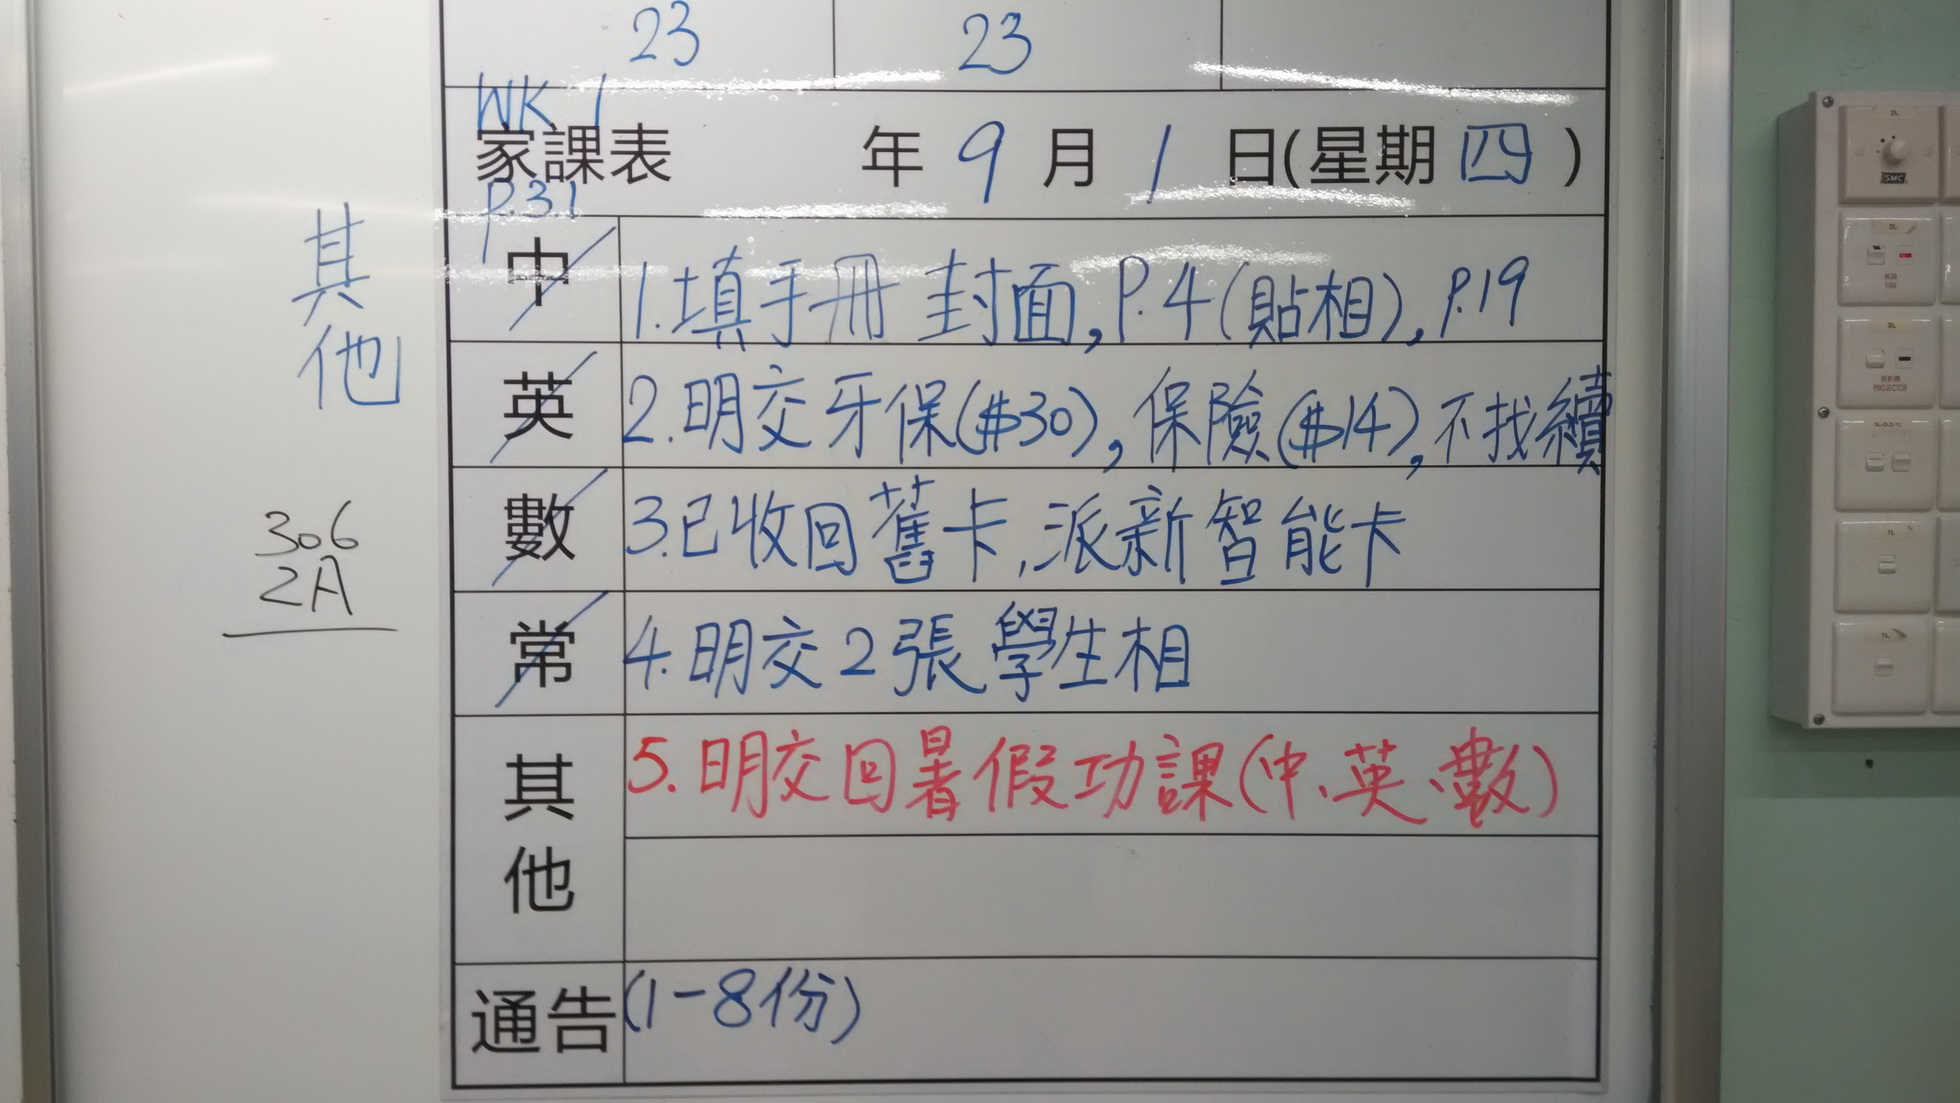 23 23
WK 1
家課表 年 9 月 1 日(星期 四 )
P.31
其他
中 1.填手冊 封面,P.4(貼相),P.19
英 2.明交牙保($30),保險($14),不找續
數 3.已收回舊卡,派新智能卡
306
2A
常 4.明交2張學生相
其他 5.明交回暑假功課(中、英、數)
通告 (1-8份)
SMC
PROJECTOR